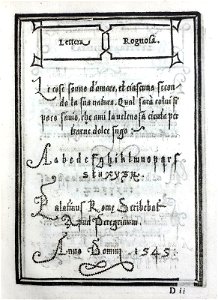 Lettera Rognosa.
Le cose sonno d'amore, et ciascuna secon
do la sua natura. Qual sarà colui si
poco savio, che ami la                 per
trarne dolce sugo
A a b c d e f g h i k l m n o p q r s
s t u x y z
Palatinus Rome Scribebat
Apud Peregrinum
Anno Domini 1545
D ii